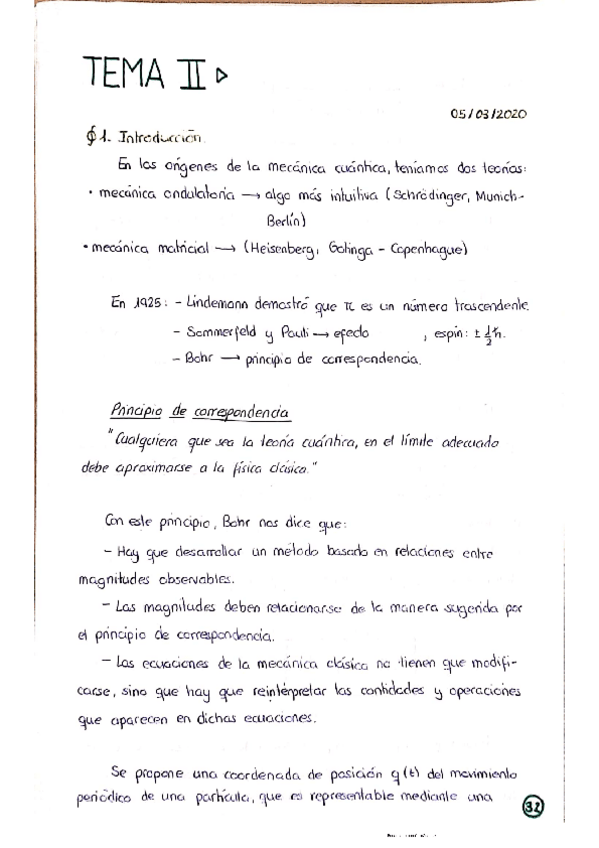 TEMA II ▷
05/03/2020
§1. Introducción.
En los orígenes de la mecánica cuántica, teníamos dos teorías:
• mecánica ondulatoria → algo más intuitiva (Schrödinger, Munich-
Berlín)
• mecánica matricial → (Heisenberg, Gotinga - Copenhague)
En 1925: - Lindemann demostró que π es un número trascendente.
- Sommerfeld y Pauli → efecto , espín: ± 1/2 ħ.
- Bohr → principio de correspondencia.
Principio de correspondencia
"Cualquiera que sea la teoría cuántica, en el límite adecuado
debe aproximarse a la física clásica."
Con este principio, Bohr nos dice que:
- Hay que desarrollar un método basado en relaciones entre
magnitudes observables.
- Las magnitudes deben relacionarse de la manera sugerida por
el principio de correspondencia.
- Las ecuaciones de la mecánica clásica no tienen que modifi-
carse, sino que hay que reinterpretar las cantidades y operaciones
que aparecen en dichas ecuaciones.
Se propone una coordenada de posición q(t) del movimiento
periódico de una partícula, que es representable mediante una
32